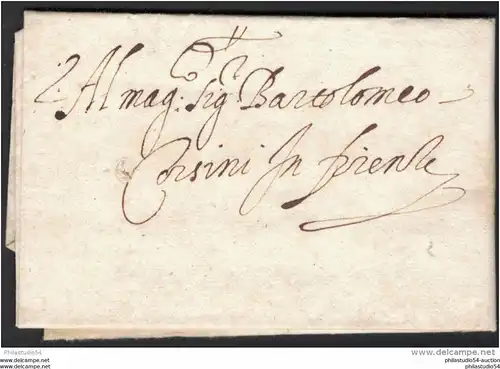 Al mag: Sigr Bartolomeo
Corsini In firenze
Philastudio54
www.delcampe.net
Philastudio54-auction
philastudio54